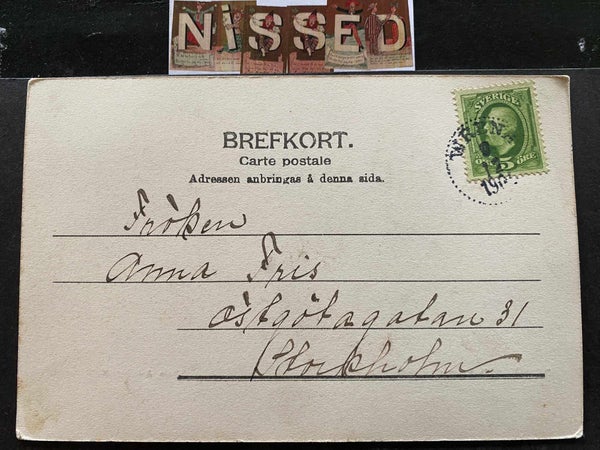 NiSSED
SVERIGE
5 ÖRE
BREFKORT.
Carte postale
Adressen anbringas å denna sida.
Fröken
Anna Fris
Östgötagatan 31
Stockholm.